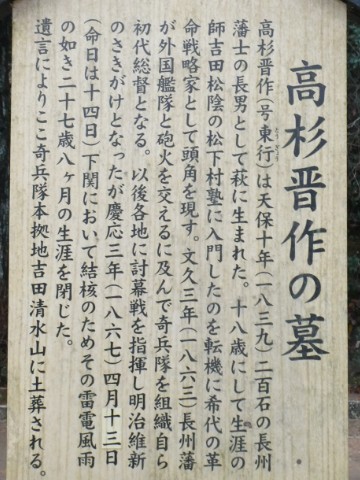 高杉晋作の墓
高杉晋作(号東行)は天保十年(一八三九)二百石の長州
藩士の長男として萩に生まれた。十八歳にして生涯の
師吉田松陰の松下村塾に入門したのを転機に希代の革
命戦略家として頭角を現す。文久三年(一八六三)長州藩
が外国艦隊と砲火を交えるに及んで奇兵隊を組織自ら
初代総督となる。以後各地に討幕戦を指揮し明治維新
のさきがけとなったが慶応三年(一八六七)四月十三日
(命日は十四日)下関において結核のためその雷電風雨
の如き二十七歳八ヶ月の生涯を閉じた。
遺言によりここ奇兵隊本拠地吉田清水山に土葬される。